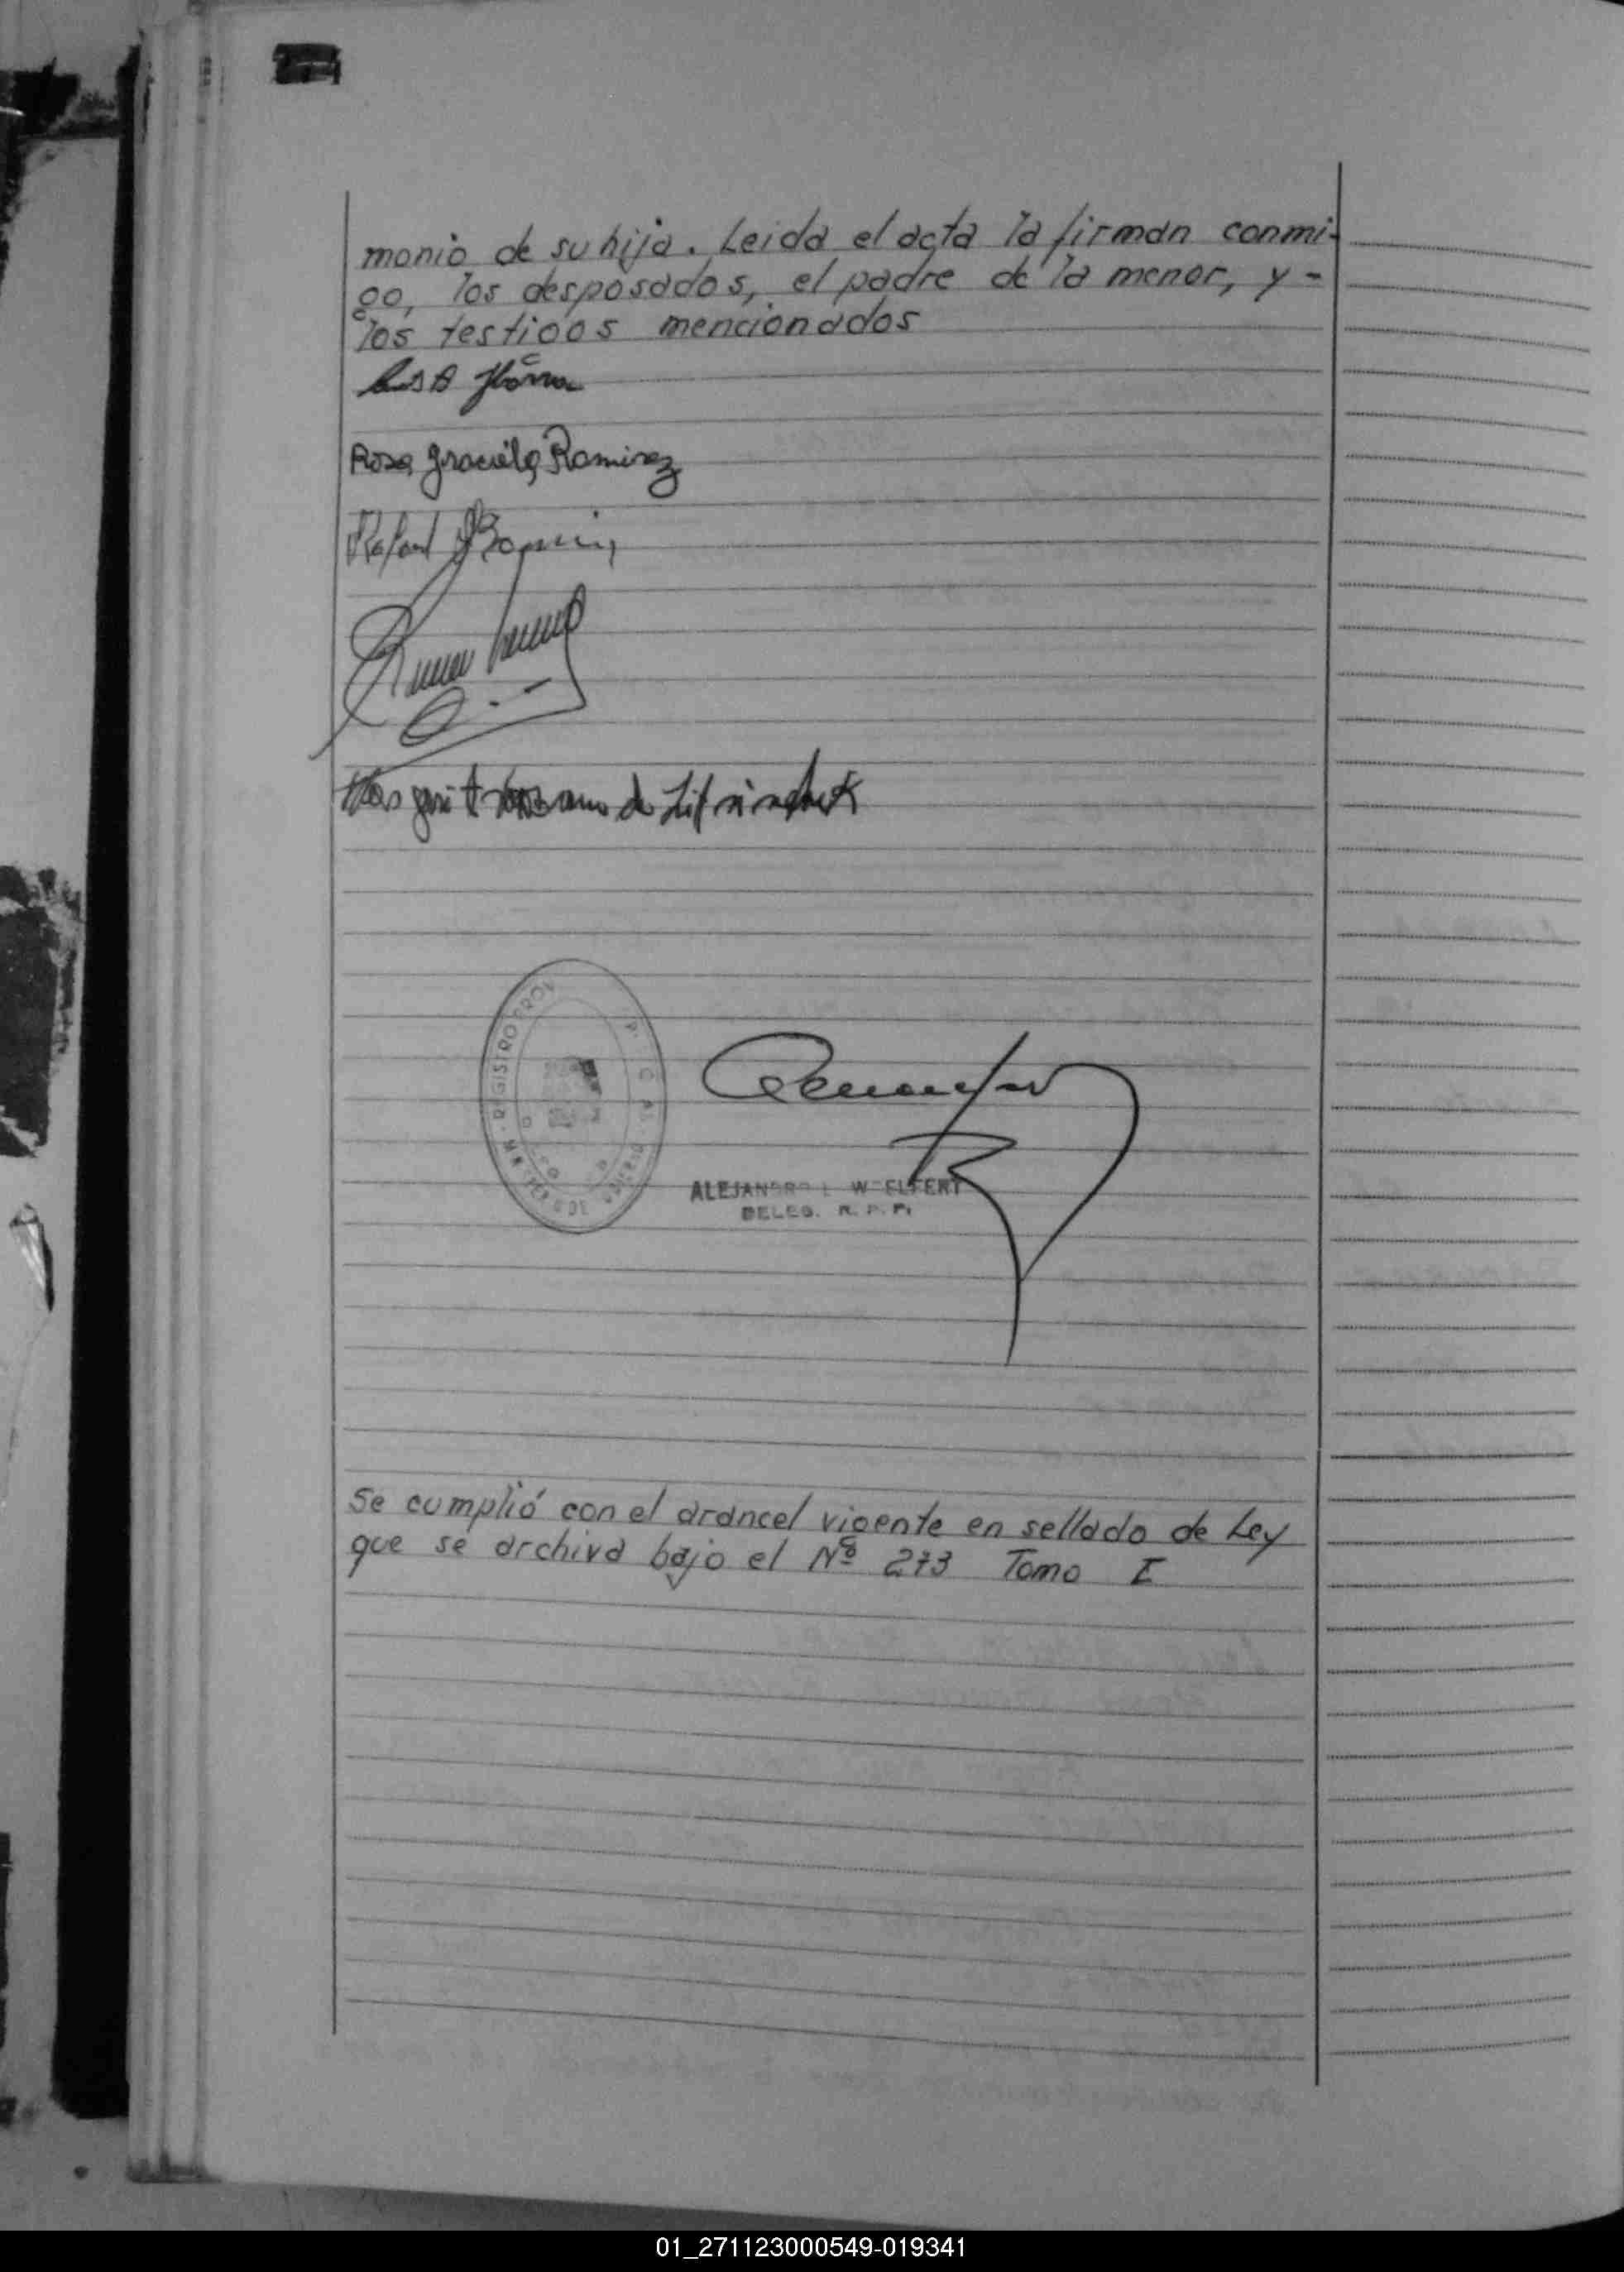 monio de su hija. Leida el acta la firman conmi-
go, los desposados, el padre de la menor, y -
los testigos mencionados
Luis A Ibarra
Rosa Graciela Ramirez
Rafael Ramirez
de
ALEJANDRO L WOELFERT
DELEG. R. P. P.
REGISTRO PROV
Se cumplió con el arancel vigente en sellado de Ley
que se archiva bajo el Nº 273 Tomo I
01_271123000549-019341